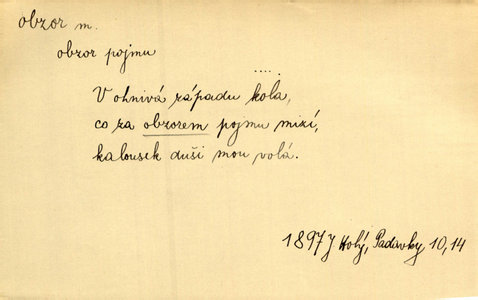 obzor m.
obzor pojmu
....
V ohnivá západu kola,
co za obzorem pojmu mizí,
kalousek duši mou volá.
1897 J Holý, Padavky 10, 14